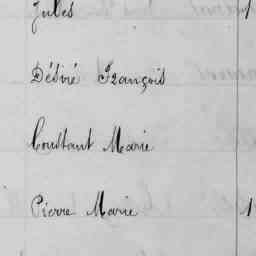 Jules 1
Désiré François
Constant Marie
Pierre Marie 1